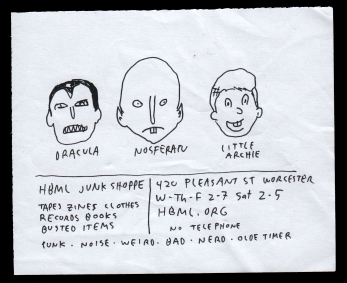 DRACULA
NOSFERATU
LITTLE
ARCHIE
HBML JUNK SHOPPE
TAPES ZINES CLOTHES
RECORDS BOOKS
BUSTED ITEMS
420 PLEASANT ST WORCESTER
W-Th-F 2-7 Sat 2-5
HBML.ORG
NO TELEPHONE
PUNK · NOISE · WEIRD · BAD · NERD · OLDE TIMER